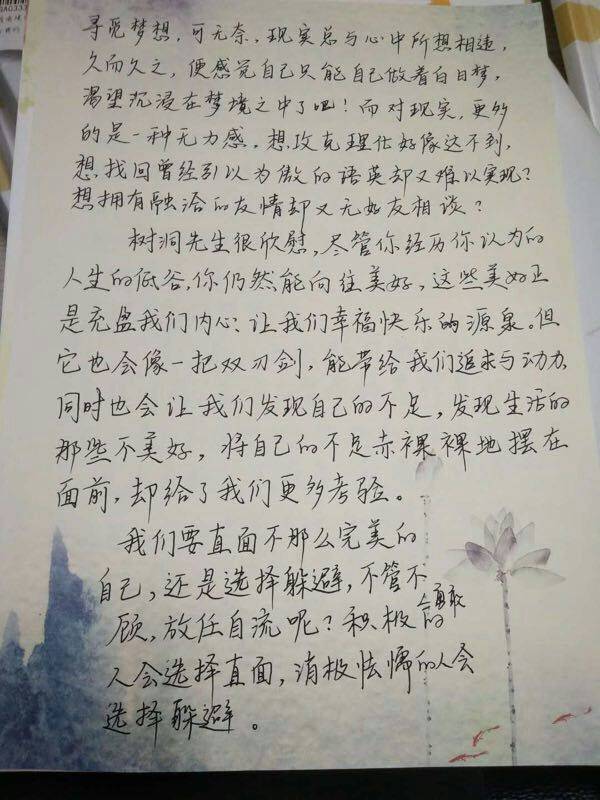 寻觅梦想，可无奈，现实总与心中所想相违，
久而久之，便感觉自己只能自己做着白日梦，
渴望沉浸在梦境之中了吧！而对现实，更多
的是一种无力感，想攻克理化好像达不到，
想找回曾经引以为傲的语英却又难以实现？
想拥有融洽的友情却又无好友相谈？
树洞先生很欣慰，尽管你经历你认为的
人生的低谷，你仍然能向往美好，这些美好正
是充盈我们内心，让我们幸福快乐的源泉。但
它也会像一把双刃剑，能带给我们追求与动力，
同时也会让我们发现自己的不足，发现生活的
那些不美好，将自己的不足赤裸裸地摆在
面前，却给了我们更多考验。
我们要直面不那么完美的
自己，还是选择躲避，不管不
顾，放任自流呢？积极勇敢的
人会选择直面，消极怯懦的人会
选择躲避。